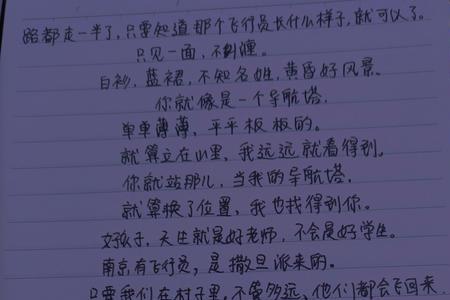 路都走一半了,只要知道那个飞行员长什么样子,就可以了。
只见一面,不
白衫,蓝裙,不知名姓,黄昏好风景。
你就像是一个导航塔,
单单薄薄,平平板板的。
就算立在山里,我远远就看得到。
你就站那儿,当我的导航塔,
就算换了位置,我也找得到你。
好孩子,天生就是好老师,不会是好学生。
南京有飞行员,是撒旦派来的。
只要我们在村子里,不管多远,他们都会飞回来